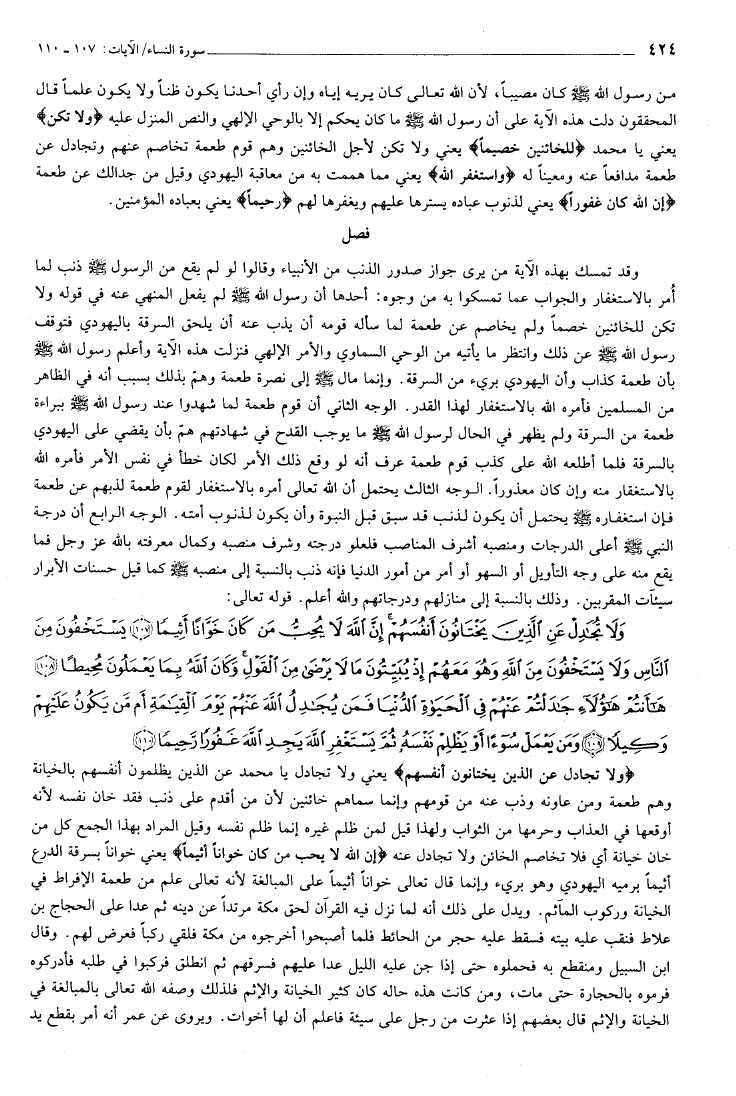 ٤٢٤ سورة النساء/ الآيات: ١٠٧ - ١١٠
من رسول الله ﷺ كان مصيباً، لأن الله تعالى كان يريه إياه وإن رأي أحدنا يكون ظناً ولا يكون علماً قال
المحققون دلت هذه الآية على أن رسول الله ﷺ ما كان يحكم إلا بالوحي الإلهي والنص المنزل عليه ﴿ولا تكن﴾
يعني يا محمد ﴿للخائنين خصيماً﴾ يعني ولا تكن لأجل الخائنين وهم قوم طعمة تخاصم عنهم وتجادل عن
طعمة مدافعاً عنه ومعيناً له ﴿واستغفر الله﴾ يعني مما هممت به من معاقبة اليهودي وقيل من جدالك عن طعمة
﴿إن الله كان غفوراً﴾ يعني لذنوب عباده يسترها عليهم ويغفرها لهم ﴿رحيماً﴾ يعني بعباده المؤمنين.
فصل
وقد تمسك بهذه الآية من يرى جواز صدور الذنب من الأنبياء وقالوا لو لم يقع من الرسول ﷺ ذنب لما
أُمر بالاستغفار والجواب عما تمسكوا به من وجوه: أحدها أن رسول الله ﷺ لم يفعل المنهي عنه في قوله ولا
تكن للخائنين خصماً ولم يخاصم عن طعمة لما سأله قومه أن يذب عنه أن يلحق السرقة باليهودي فتوقف
رسول الله ﷺ عن ذلك وانتظر ما يأتيه من الوحي السماوي والأمر الإلهي فنزلت هذه الآية وأعلم رسول الله ﷺ
بأن طعمة كذاب وأن اليهودي بريء من السرقة. وإنما مال ﷺ إلى نصرة طعمة وهمّ بذلك بسبب أنه في الظاهر
من المسلمين فأمره الله بالاستغفار لهذا القدر. الوجه الثاني أن قوم طعمة لما شهدوا عند رسول الله ﷺ ببراءة
طعمة من السرقة ولم يظهر في الحال لرسول الله ﷺ ما يوجب القدح في شهادتهم همّ بأن يقضي على اليهودي
بالسرقة فلما أطلعه الله على كذب قوم طعمة عرف أنه لو وقع ذلك الأمر لكان خطأ في نفس الأمر فأمره الله
بالاستغفار منه وإن كان معذوراً. الوجه الثالث يحتمل أن الله تعالى أمره بالاستغفار لقوم طعمة لذبهم عن طعمة
فإن استغفاره ﷺ يحتمل أن يكون لذنب قد سبق قبل النبوة وأن يكون لذنوب أمته. الوجه الرابع أن درجة
النبي ﷺ أعلى الدرجات ومنصبه أشرف المناصب فلعلو درجته وشرف منصبه وكمال معرفته بالله عز وجل فما
يقع منه على وجه التأويل أو السهو أو أمر من أمور الدنيا فإنه ذنب بالنسبة إلى منصبه ﷺ كما قيل حسنات الأبرار
سيئآت المقربين. وذلك بالنسبة إلى منازلهم ودرجاتهم والله أعلم. قوله تعالى:
وَلَا تُجَادِلْ عَنِ ٱلَّذِينَ يَخْتَانُونَ أَنفُسَهُمْ ۚ إِنَّ ٱللَّهَ لَا يُحِبُّ مَن كَانَ خَوَّانًا أَثِيمًا ﴿١٠٧﴾ يَسْتَخْفُونَ مِنَ
ٱلنَّاسِ وَلَا يَسْتَخْفُونَ مِنَ ٱللَّهِ وَهُوَ مَعَهُمْ إِذْ يُبَيِّتُونَ مَا لَا يَرْضَىٰ مِنَ ٱلْقَوْلِ ۚ وَكَانَ ٱللَّهُ بِمَا يَعْمَلُونَ مُحِيطًا ﴿١٠٨﴾
هَٰٓأَنتُمْ هَٰٓؤُلَآءِ جَٰدَلْتُمْ عَنْهُمْ فِى ٱلْحَيَوٰةِ ٱلدُّنْيَا فَمَن يُجَٰدِلُ ٱللَّهَ عَنْهُمْ يَوْمَ ٱلْقِيَٰمَةِ أَم مَّن يَكُونُ عَلَيْهِمْ
وَكِيلًا ﴿١٠٩﴾ وَمَن يَعْمَلْ سُوٓءًا أَوْ يَظْلِمْ نَفْسَهُۥ ثُمَّ يَسْتَغْفِرِ ٱللَّهَ يَجِدِ ٱللَّهَ غَفُورًا رَّحِيمًا ﴿١١٠﴾
﴿ولا تجادل عن الذين يختانون أنفسهم﴾ يعني ولا تجادل يا محمد عن الذين يظلمون أنفسهم بالخيانة
وهم طعمة ومن عاونه وذب عنه من قومهم وإنما سماهم خائنين لأن من أقدم على ذنب فقد خان نفسه لأنه
أوقعها في العذاب وحرمها من الثواب ولهذا قيل لمن ظلم غيره إنما ظلم نفسه وقيل المراد بهذا الجمع كل من
خان خيانة أي فلا تخاصم الخائن ولا تجادل عنه ﴿إن الله لا يحب من كان خواناً أثيماً﴾ يعني خواناً بسرقة الدرع
أثيماً برميه اليهودي وهو بريء وإنما قال تعالى خواناً أثيماً على المبالغة لأنه تعالى علم من طعمة الإفراط في
الخيانة وركوب المآثم. ويدل على ذلك أنه لما نزل فيه القرآن لحق مكة مرتداً عن دينه ثم عدا على الحجاج بن
علاط فنقب عليه بيته فسقط عليه حجر من الحائط فلما أصبحوا أخرجوه من مكة فلقي ركباً فعرض لهم. وقال
ابن السبيل ومنقطع به فحملوه حتى إذا جن عليه الليل عدا عليهم فسرقهم ثم انطلق فركبوا في طلبه فأدركوه
فرموه بالحجارة حتى مات، ومن كانت هذه حاله كان كثير الخيانة والإثم فلذلك وصفه الله تعالى بالمبالغة في
الخيانة والإثم قال بعضهم إذا عثرت من رجل على سيئة فاعلم أن لها أخوات. ويروى عن عمر أنه أمر بقطع يد